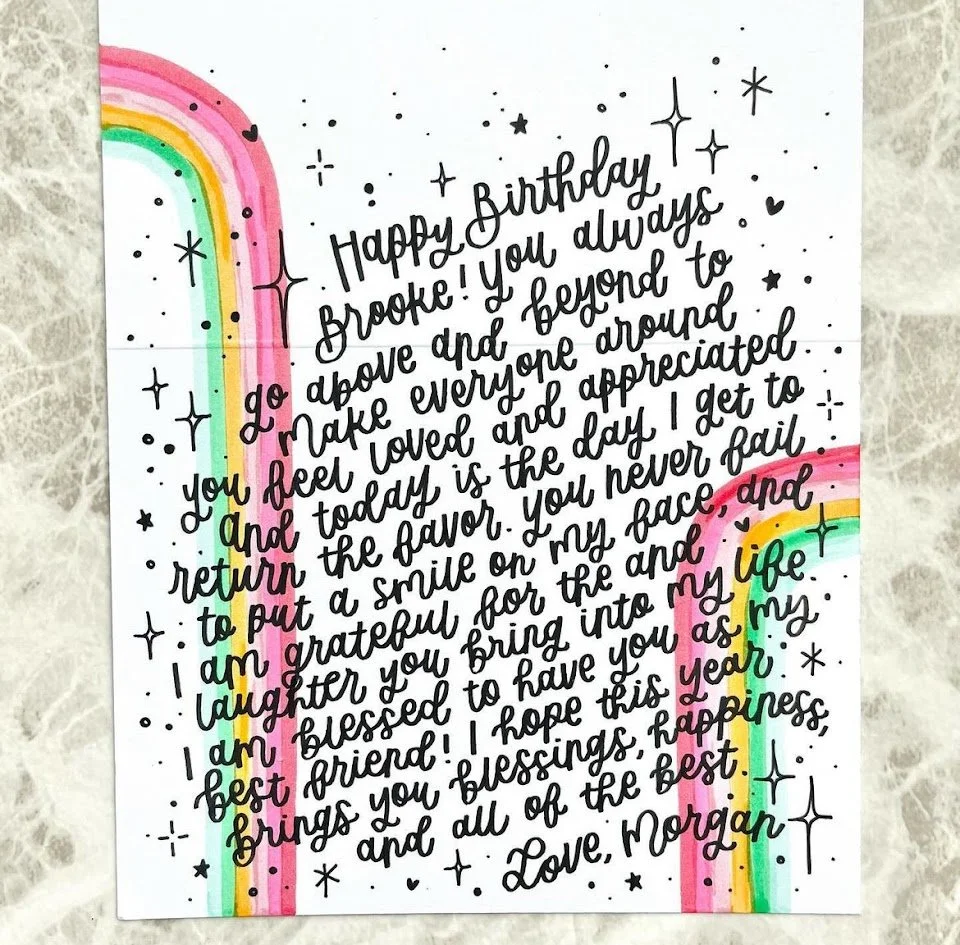 Happy Birthday
Brooke! you always
go above and beyond to
make everyone around
you feel loved and appreciated
and today is the day I get to
return the favor. you never fail
to put a smile on my face, and
I am grateful for the and
laughter you bring into my life.
I am blessed to have you as my
best friend! I hope this year
brings you blessings, happiness,
and all of the best.
Love, Morgan